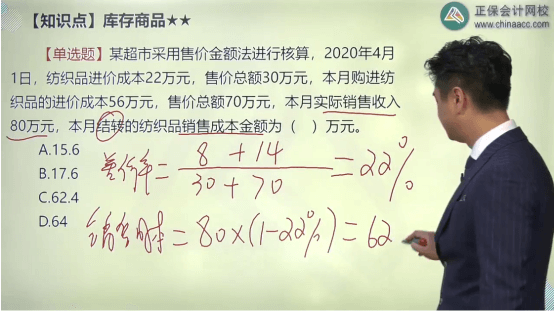 【知识点】库存商品★★
正保会计网校
www.chinaacc.com
【单选题】某超市采用售价金额法进行核算，2020年4月
1日，纺织品进价成本22万元，售价总额30万元，本月购进纺
织品的进价成本56万元，售价总额70万元，本月实际销售收入
80万元，本月结转的纺织品销售成本金额为（ ）万元。
A.15.6
B.17.6
C.62.4
D.64
差价率= 8+14
30+70
=22%
=80×(1-22%)=62